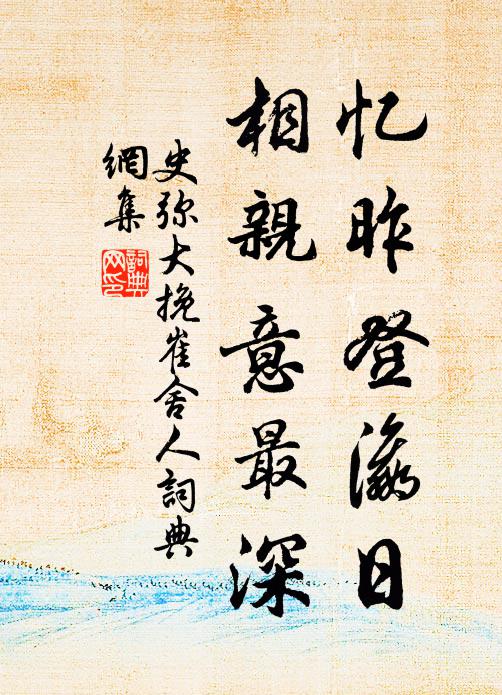 忆昨登瀛日
相親意最深
史弥大挽崔舍人詞典
網集
詞典网印